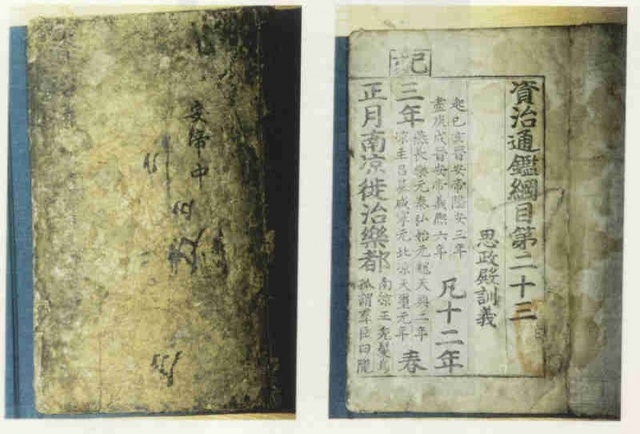 安帝中
資治通鑑綱目第二十三
思政殿訓義
起己亥晉安帝隆安三年
盡庚戌晉安帝義熙六年
凡十二年
己亥
三年
燕長樂元秦弘始元魏天興二年
涼主呂纂咸寧元北涼天璽元年
春
正月南凉徙治樂都
南涼王禿髮烏
孤謂羣臣曰隴